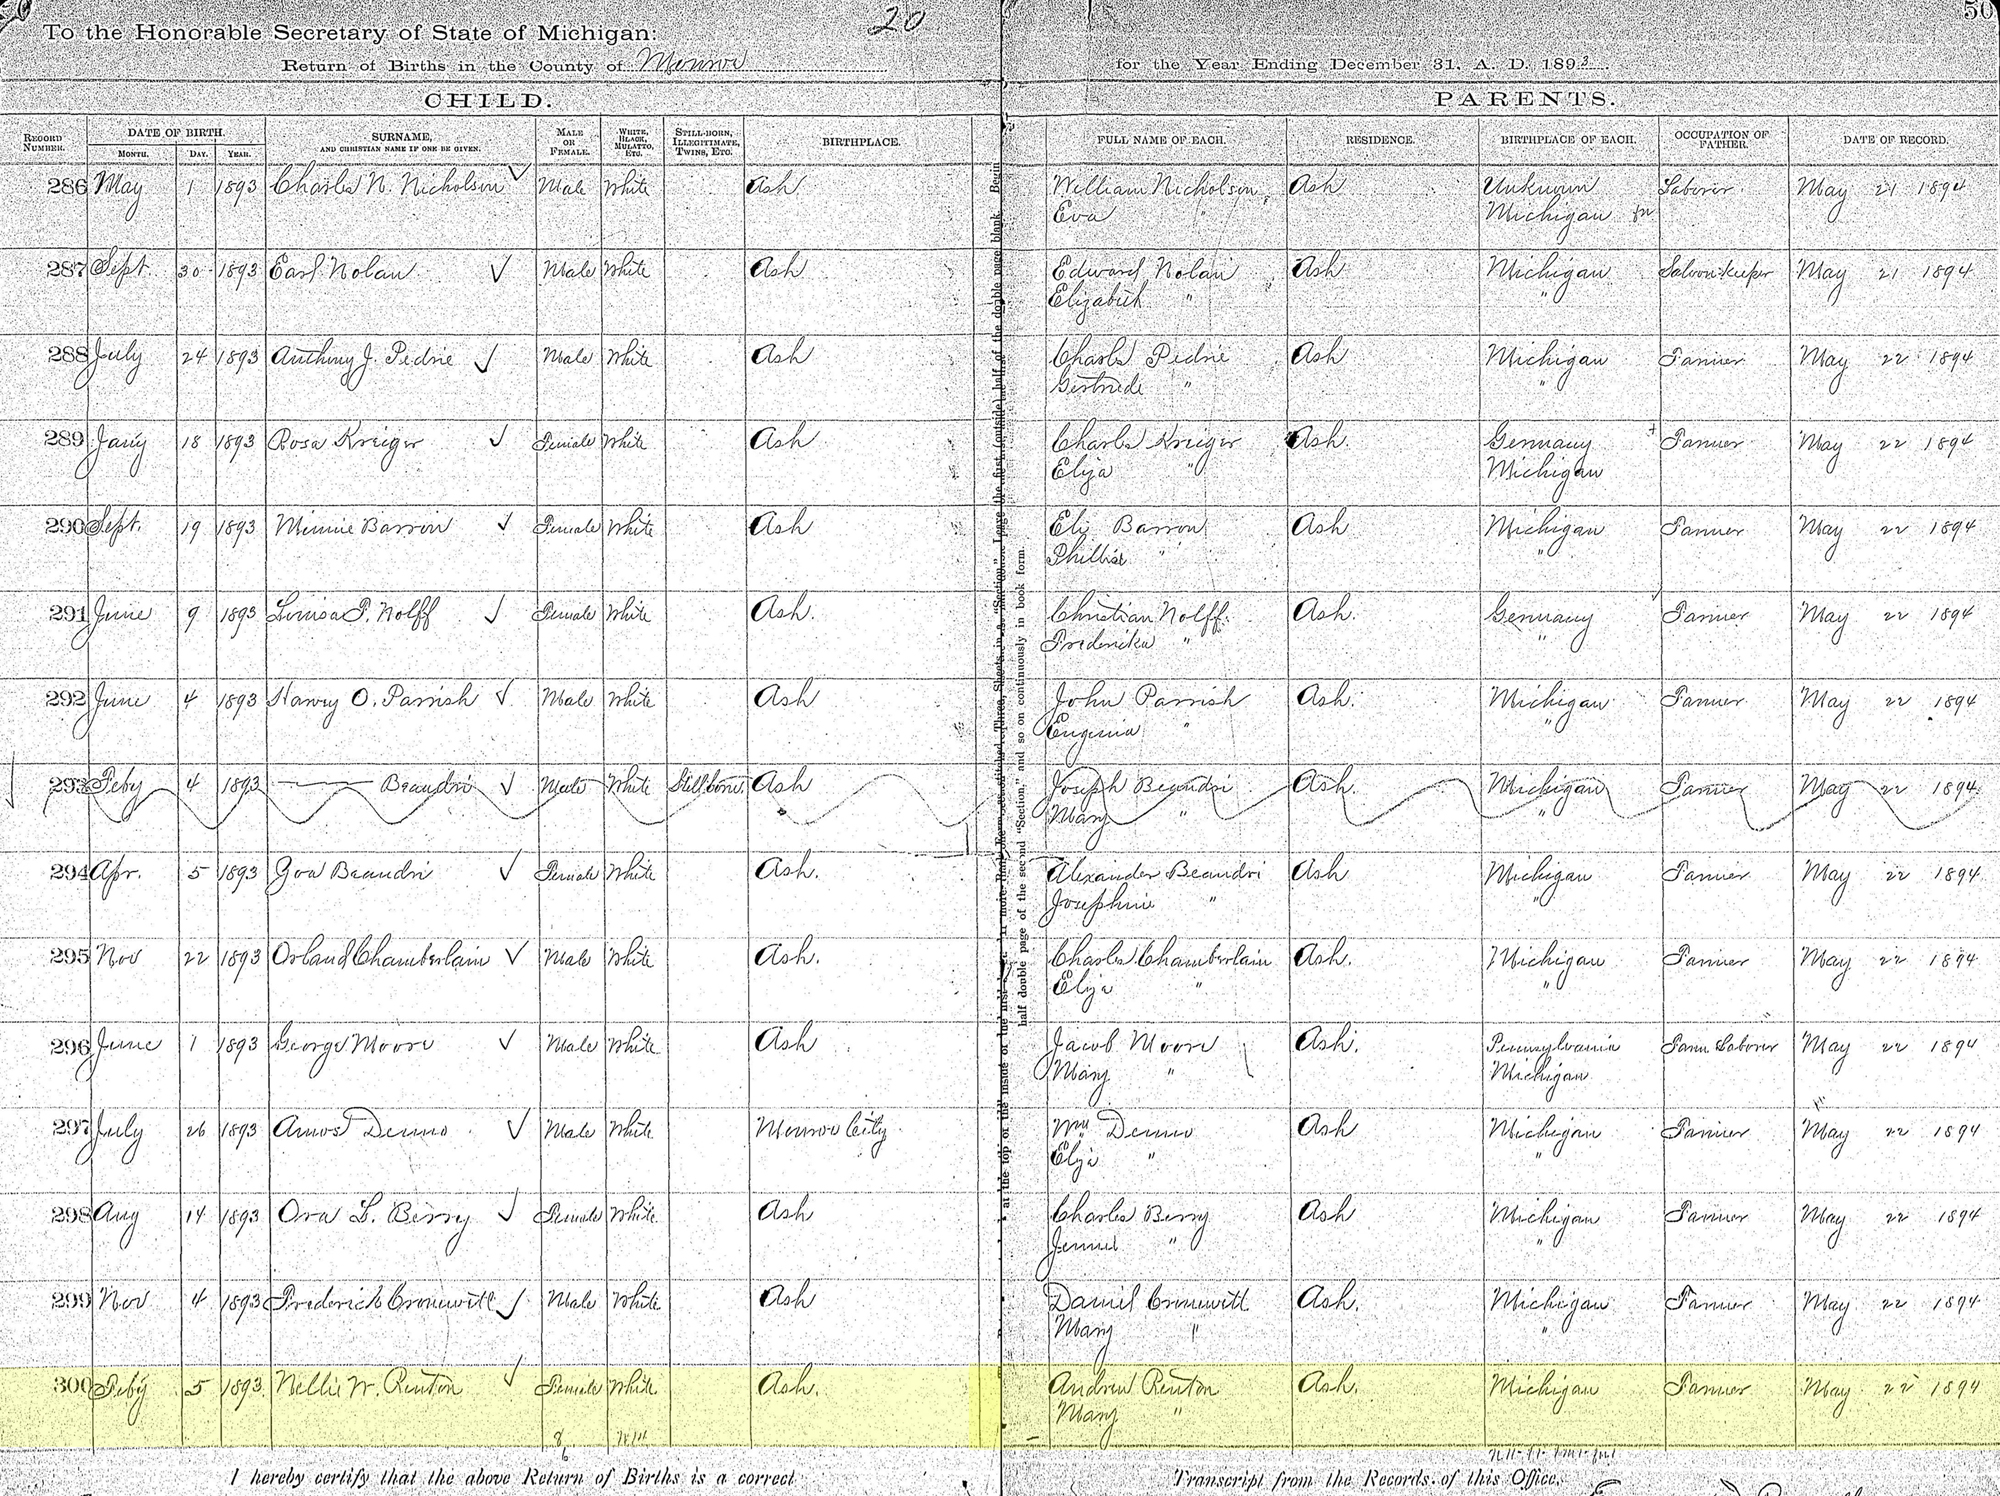 20
50
To the Honorable Secretary of State of Michigan:
Return of Births in the County of Monroe
for the Year Ending December 31, A. D. 1893.
CHILD.
PARENTS.
RECORD NUMBER.
DATE OF BIRTH.
MONTH. DAY. YEAR.
SURNAME, AND CHRISTIAN NAME IF ONE BE GIVEN.
MALE OR FEMALE.
WHITE, BLACK, MULATTO, ETC.
STILL-BORN, ILLEGITIMATE, TWINS, ETC.
BIRTHPLACE.
FULL NAME OF EACH.
RESIDENCE.
BIRTHPLACE OF EACH.
OCCUPATION OF FATHER.
DATE OF RECORD.
286 May 1 1893 Charles N. Nicholson Male White Ash William Nicholson Ash Unknown Laborer May 21 1894
Eva " Michigan
287 Sept. 30 1893 Earl Nolan Male White Ash Edward Nolan Ash Michigan Saloon Keeper May 21 1894
Elizabeth " "
288 July 24 1893 Anthony J. Pedrie Male White Ash Charles Pedrie Ash Michigan Farmer May 22 1894
Gertrude " "
289 Jany 18 1893 Rosa Kreiger Female White Ash Charles Kreiger Ash. Germany Farmer May 22 1894
Eliza " Michigan
290 Sept. 19 1893 Minnie Barron Female White Ash Eli Barron Ash Michigan Farmer May 22 1894
" "
291 June 9 1893 Louisa F. Nolff Female White Ash. Christian Nolff. Ash. Germany Farmer May 22 1894
Fredericka " "
292 June 4 1893 Harvey O. Parrish Male White Ash John Parrish Ash. Michigan Farmer May 22 1894
Eugenia " "
293 Feby 4 1893 —— Beaudri Male White Still born Ash Joseph Beaudri Ash. Michigan Farmer May 22 1894
Mary " "
294 Apr. 5 1893 Beaudri Female White Ash. Alexander Beaudri Ash Michigan Farmer May 22 1894
Josephine " "
295 Nov 22 1893 Orland Chamberlain Male White Ash. Charles Chamberlain Ash. Michigan Farmer May 22 1894
Eliza " "
296 June 1 1893 George Moore Male White Ash Jacob Moore Ash. Pennsylvania Farm Laborer May 22 1894
Mary " Michigan
297 July 26 1893 Amos Denno Male White Monroe City Wm Denno Ash Michigan Farmer May 22 1894
Eliza " "
298 Aug 14 1893 Ora L. Berry Female White Ash Charles Berry Ash Michigan Farmer May 22 1894
Jennie " "
299 Nov 4 1893 Frederick Cronewitt Male White Ash Daniel Cronewitt Ash. Michigan Farmer May 22 1894
Mary " "
300 Feby 5 1893 Nellie W. Renton Female White Ash. Andrew Renton Ash. Michigan Farmer May 22 1894
Mary "
I hereby certify that the above Return of Births is a correct
Transcript from the Records of this Office.
half double page of the second "Section," and so on continuously in book form.